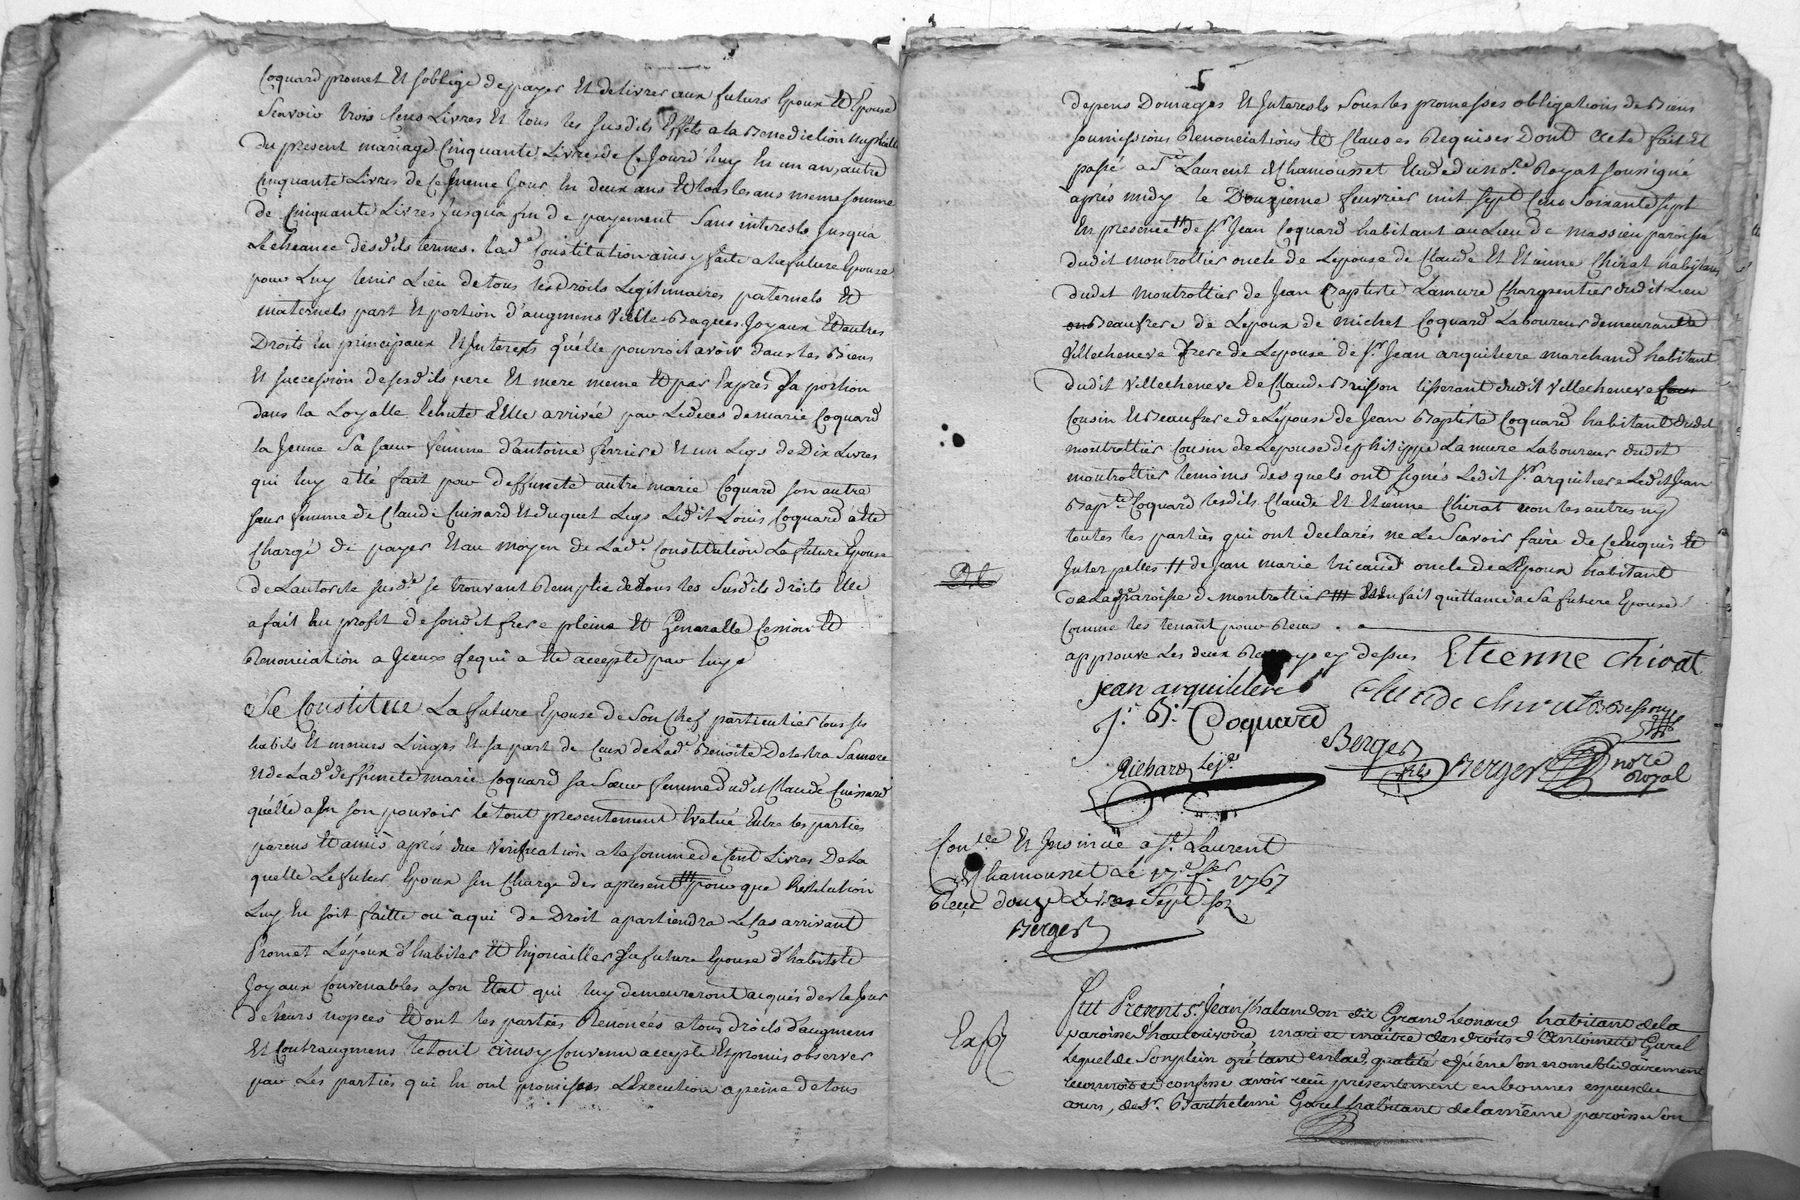 Coquard promet Et soblige de payer Et delivrer aux futurs Epoux Et Epouse
Scavoir trois Cens Livres Et tous les susdits Effets a la Benediction nuptialle
du present mariage Cinquante Livres de Ce Jourd'huy En un an, autre
Cinquante Livres de Ce meme Jour En deux ans Et tous les ans meme somme
de Cinquante Livres Jusqua fin de payement Sans interests Jusqu'a
Lecheance desdits termes. Lad.e Constitution ainsy faite a la future Epouse
pour Luy tenir Lieu de tous les Droits Legitimaires paternels Et
maternels part Et portion d'augmens Vielle Bagues Joyaux Et autres
Droits En principaux Et Interests qu'elle pourroit avoir dans les Biens
Et succession de sesdits pere Et mere meme Et par Exprès Sa portion
dans la Loyalle Echute a Elle arrivée par Le deces de marie Coquard
la Jeune Sa sœur femme d'antoine ferriere Et un Legs de Dix Livres
qui Luy a été fait par deffuncte autre marie Coquard son autre
sœur femme de Claude Cuissard Et duquel Legs Ledit Louis Coquard a été
Chargé de payer Et au moyen de Lad.e Constitution La future Epouse
de Lautorité susd.e se trouvant Remplie de tous les Susdits droits Elle
a fait Au profit de sondit frere pleine Et Generalle Cession Et
Renonciation a Iceux Ce qui a Eté accepté par Luy
Se Constitue La future Epouse de Son Chef particulier tous ses
habits Et menus Linges Et sa part de Ceux de Lad.e Benoite Delestra Sa mere
Et de Lad.e deffuncte marie Coquard sa Sœur femme dudit Claude Cuissard
qu'elle a En son pouvoir le tout presentement Evalué Entre les parties
parens Et amis après due Verification a la somme de Cent Livres De La
quelle Le futur Epoux sen Charge des apresent pour que Restitution
Luy En soit faitte ou a qui de Droit apartiendra Le Cas arrivant
Promet L'époux d'habiller Et Enjouailler Sa future Epouse d'habits Et
Joyaux Convenables a son Etat qui luy demeureront acquis des le Jour
de leurs nopces Et dont les parties Renoncées a tous droits d'augmens
Et Contraugmens le tout ainsy Convenu accepté Et promis observer
par Les parties qui En ont promis L'Execution a peine de tous
5
depens Domages Et Interests Sous les promesses obligations de Biens
soumissions Renonciations Et Clauses Requises Dont acte fait Et
passé a S.t Laurent de Chamousset Etude du no.re Royal soussigné
après midy le Douzieme feuvrier mil sept Cens Soixante sept
En presence de S.r Jean Coquard habitant au Lieu de Massieu paroisse
dudit montrottier oncle de Lepouse de Claude Et Etienne Chirat habitans
dudit Montrottier de Jean Baptiste Lamure Charpentier dudit Lieu
Beaufrere de Lepoux de michel Coquard Laboureur demeurant
Villecheneve frere de Lepouse de S.r Jean arquiliere marchand habitant
dudit Villecheneve de Claude Brisson tisserant dudit Villecheneve
Cousin Et Beaufrere de Lépouse de Jean Baptiste Coquard habitant dudit
montrottier Cousin de Lepouse de philippe Lamure Laboureur dudit
montrottier temoins desquels ont signés Ledit S.r arquiliere Ledit Jean
Bap.te Coquard lesdits Claude Et Etienne Chirat non les autres ny
toutes les parties qui ont declarés ne Le Scavoir faire de Ce Enquis Et
Interpellés # de Jean marie tricaud oncle de L'Epoux habitant
de La paroisse de Montrottier Et En fait quittance a Sa future Epouse
Comme les tenant pour
approuvé Les deux Renvoys cy dessus Etienne Chirat
jean arquilliere Claude Chirat
J. B. Coquard
Berger
Richard Berger no.re
Royal
Con.lé Et Insinué a S.t Laurent
de Chamousset Le 17.e f.er 1767
Reçu douze Livres Sept sols
Berger
Exp
Fut Present S.r Jean Chalandon dit Grand Leonard habitant de la
paroisse d'hauterivoire mari et maitre des droits d'Antoinette Garel
Lequel de Son plein gré tant en lad. qualité qu'en son nom solidairement
reconnoit et confesse avoir recu presentement en bonnes especes du
cours, de S.r Barthelemi Garel habitant de la même paroisse son